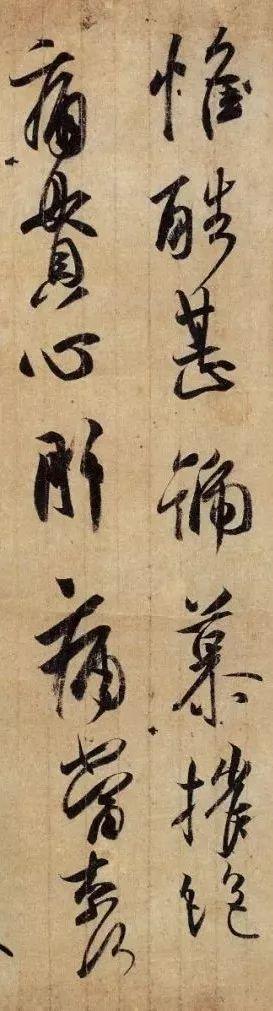 惟酷甚號慕摧絶
痛貫心肝痛當奈何